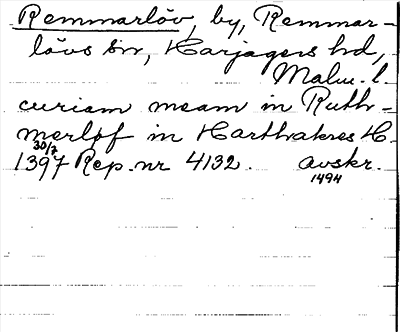 Remmarlöv, by, Remmar-
lövs sn, Harjagers hd,
Malm. l.
curiam meam in Ruth-
merløf in Harthakres H.
30/7
1397 Rep. nr 4132. avskr.
1494